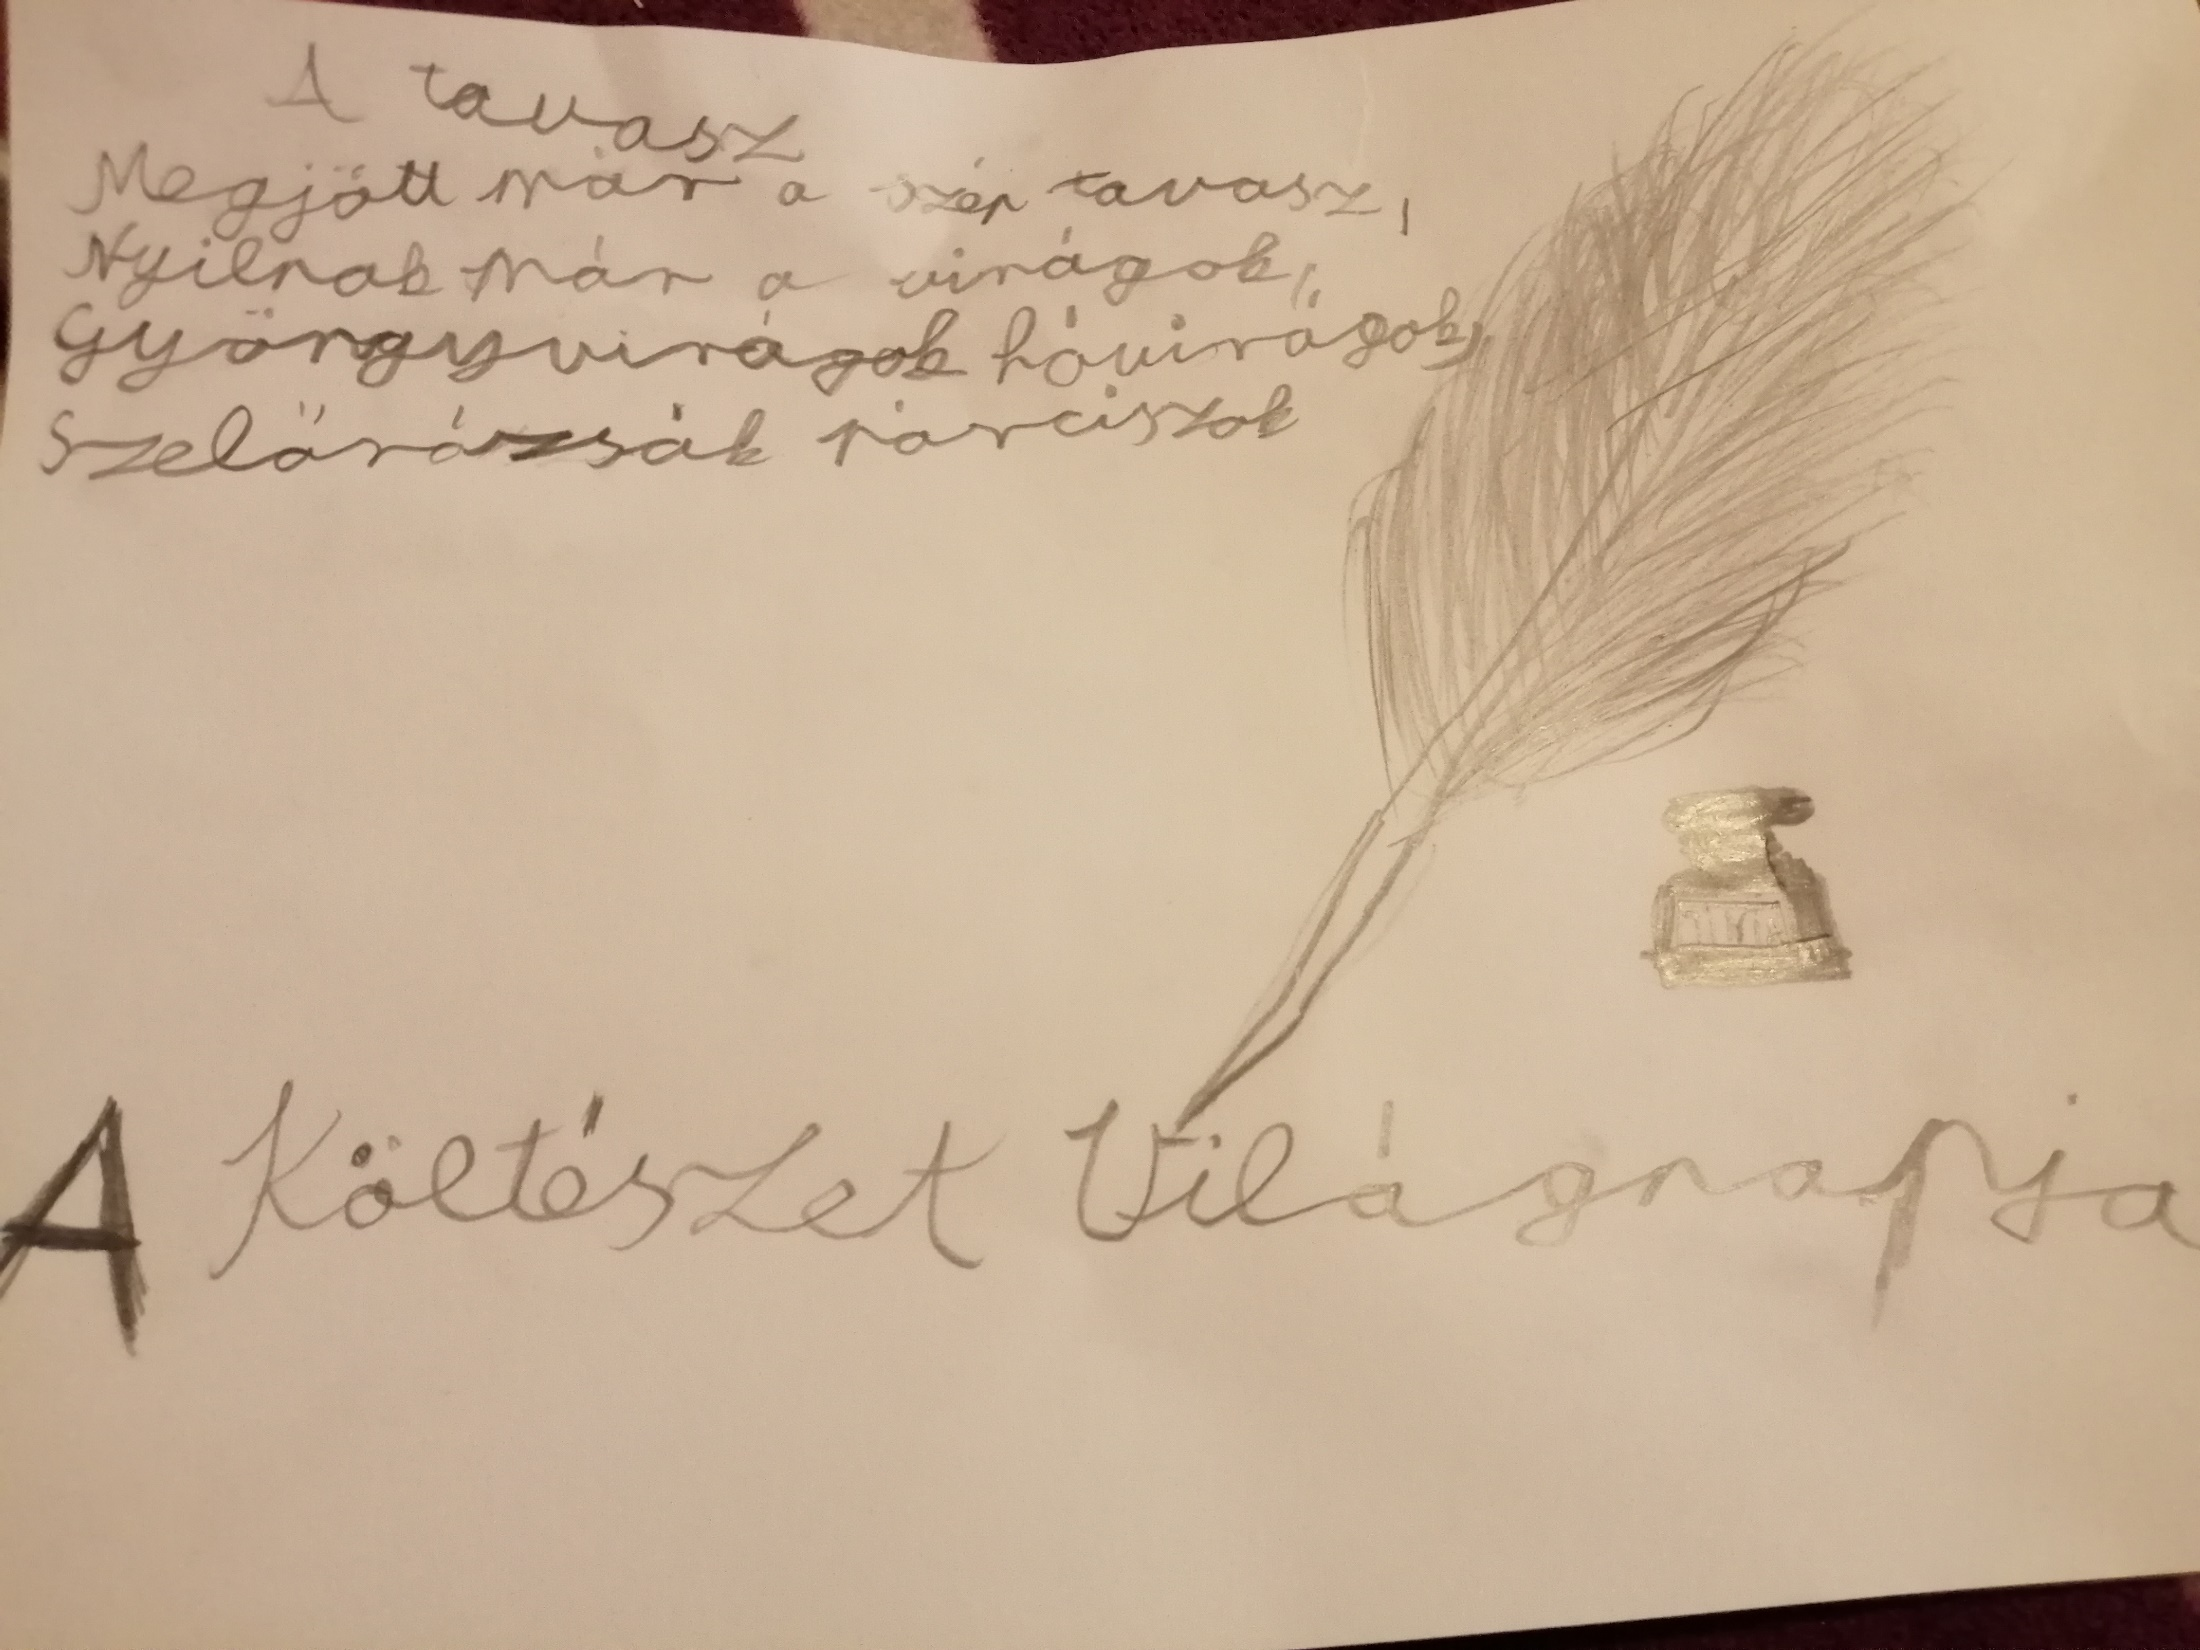 A tavasz
Megjött már a szép tavasz,
Nyilnak már a virágok,
Gyöngyvirágok hóvirágok,
Szelőrózsák nárciszok
A Költészet Világnapja